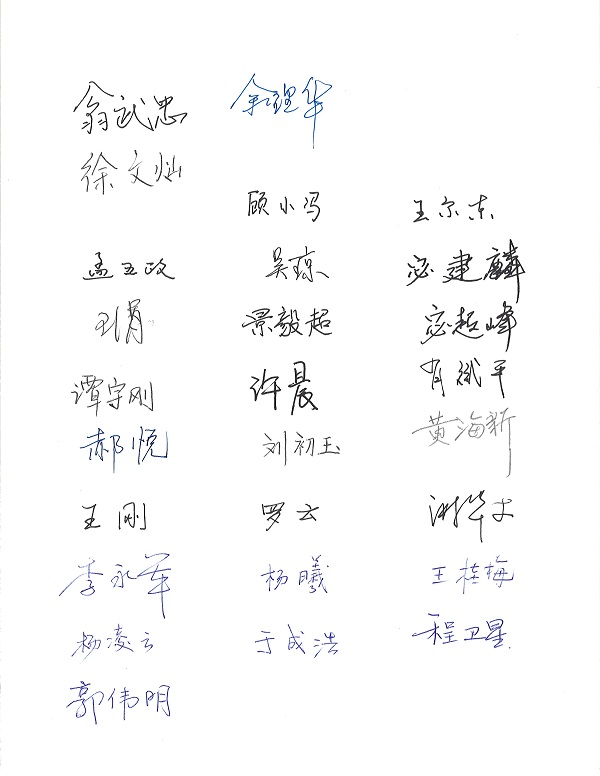 翁武忠 余理华
徐文灿
顾小冯 王尔东
孟五政 吴琼 宓建麟
王涓 景毅超 宓超峰
谭宇刚 许晨 肖斌平
郝悦 刘初玉 黄海新
王刚 罗云
李永军 杨曦 王桂梅
杨凌云 于成浩 程卫星
郭伟明